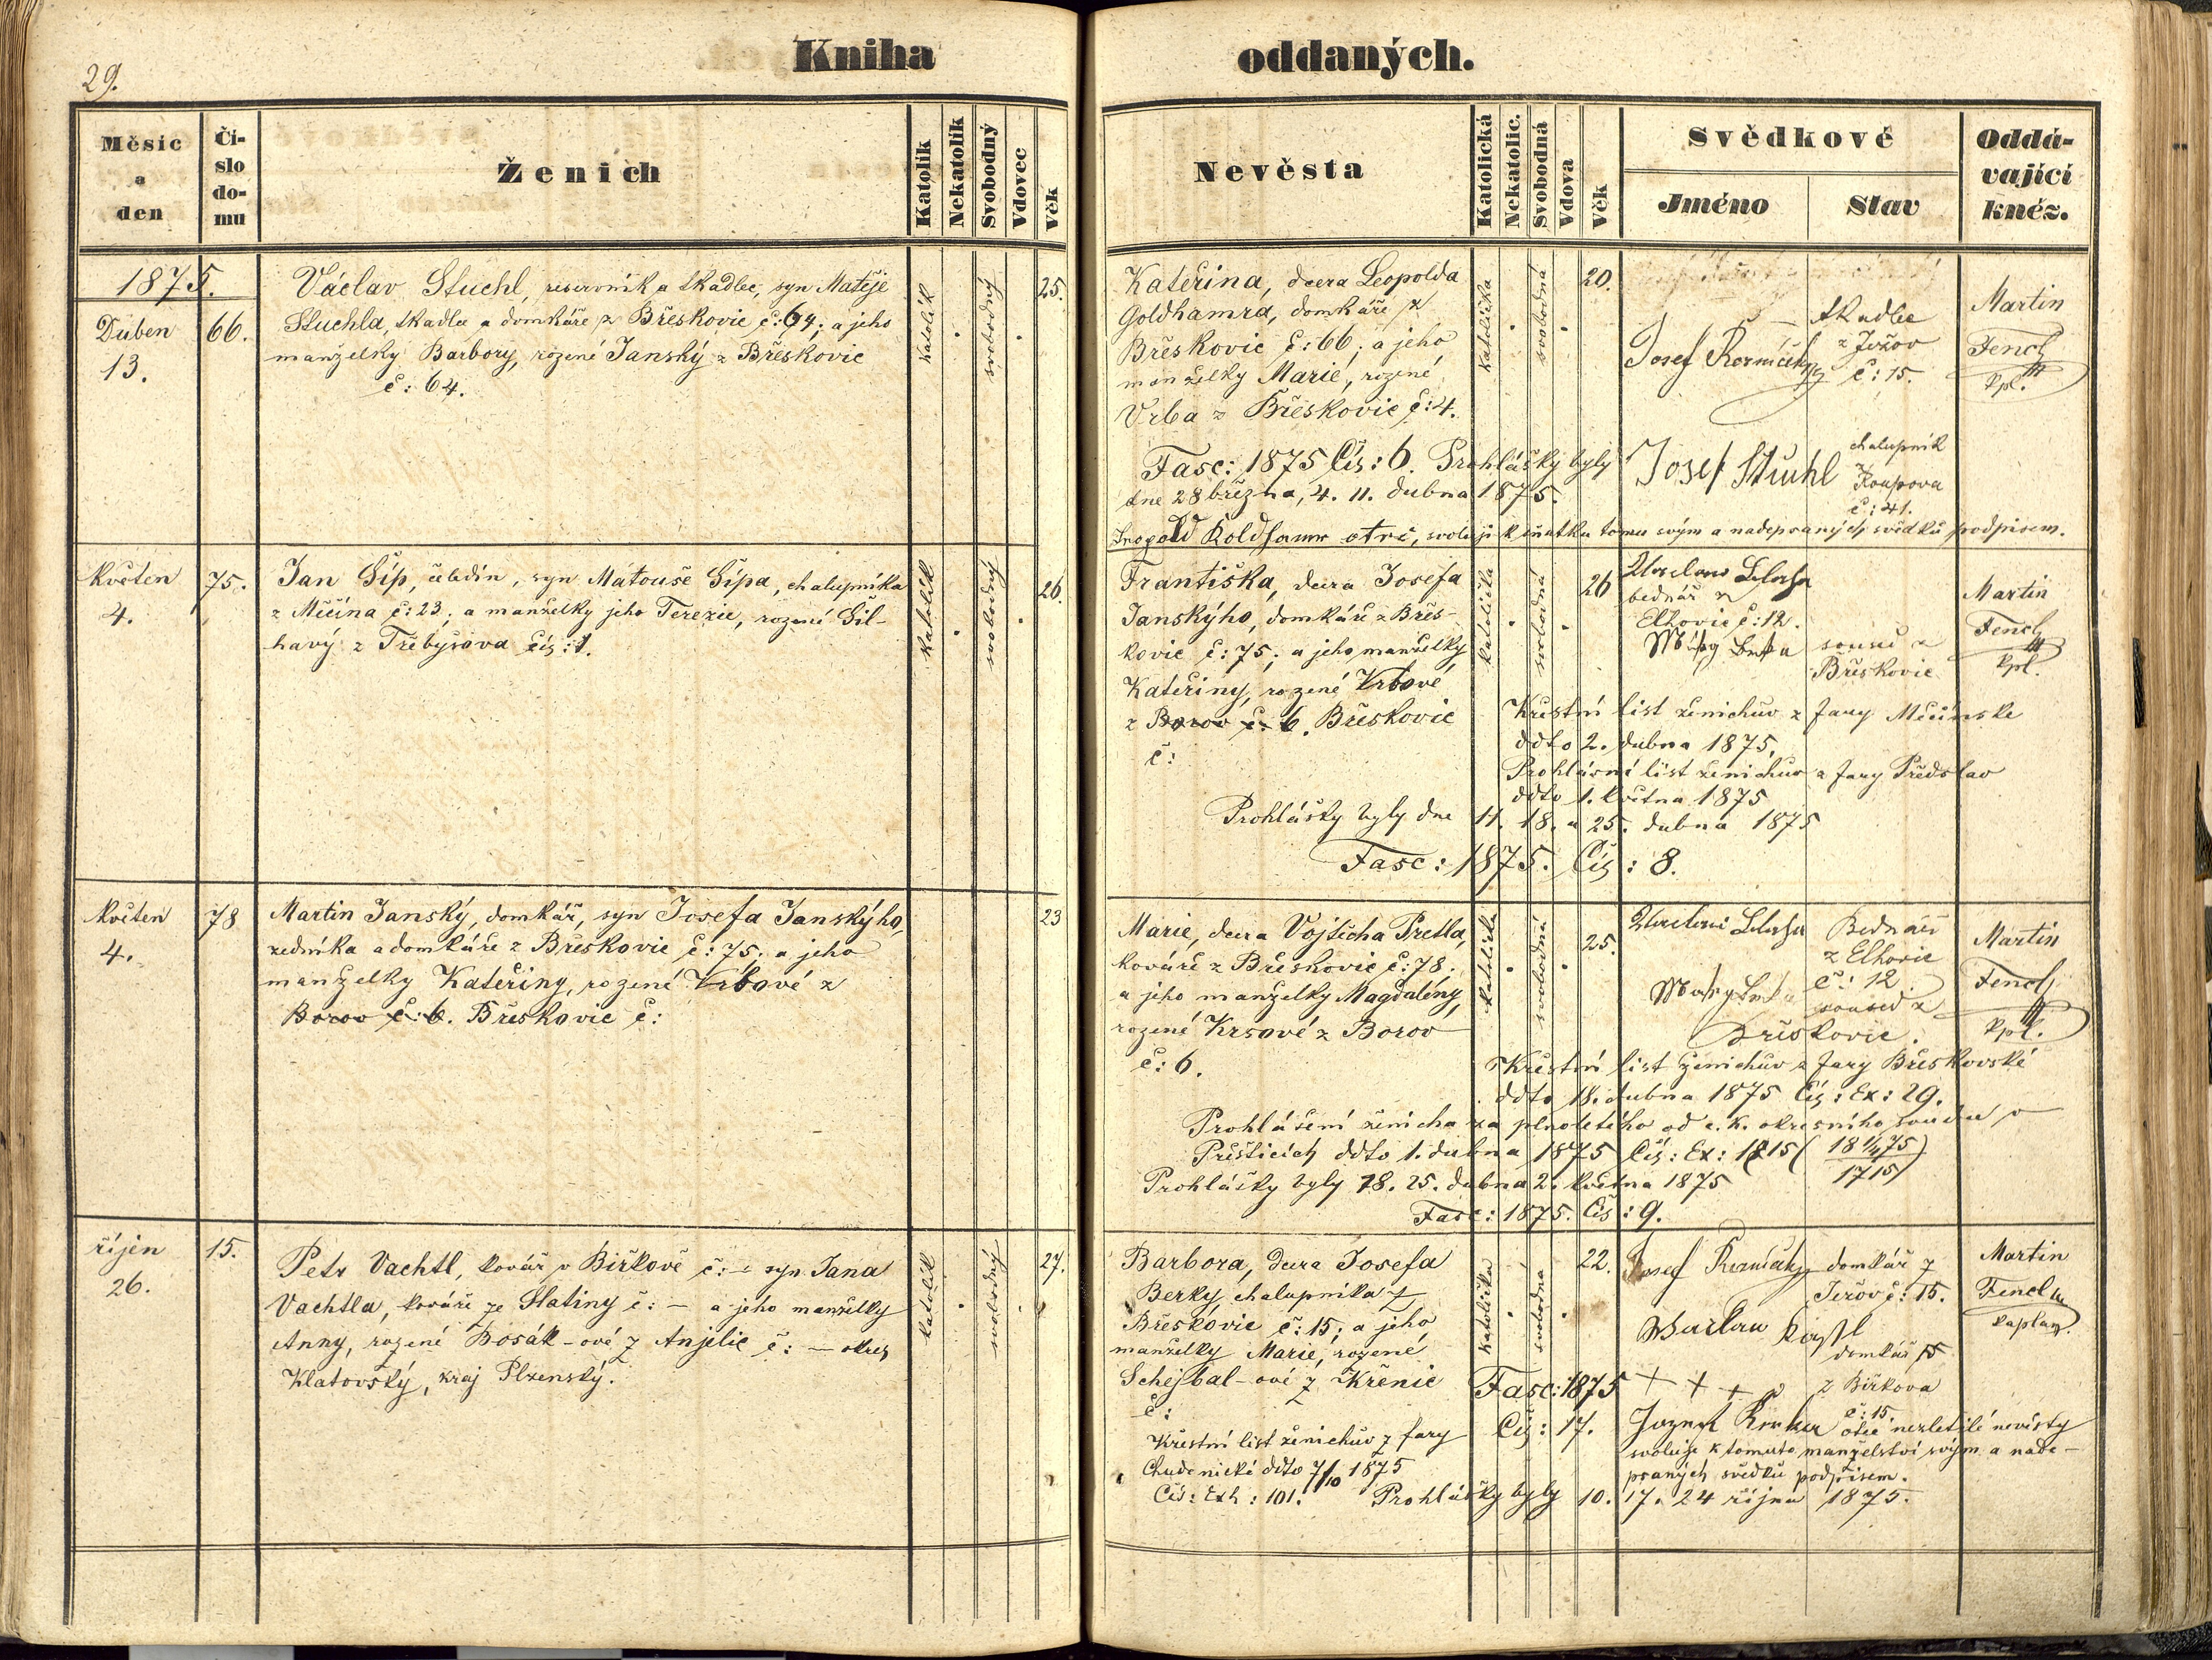 29.
Kniha oddaných.
Měsíc a den
Čí-
slo
do-
mu
Ženich
Katolík
Nekatolík
Svobodný
Vdovec
Věk
Nevěsta
Katolická
Nekatolic.
Svobodná
Vdova
Věk
Svědkové
Jméno
Stav
Oddá-
vající
kněz.
1875.
Duben
13.
66.
Václav Stuchl, reservník a tkadlec, syn Matěje
Stuchla, tkadlce a domkáře z Břeskovic č: 64; a jeho
manželky Barbory, rozené Janský z Břeskovic
č: 64.
katolík
svobodný
25.
Kateřina, dcera Leopolda
Goldhamra, domkáře z
Břeskovic č: 66; a jeho
manželky Marie, rozené
Vrba z Břeskovic č: 4.
katolička
svobodná
20.
Josef
tkadlec
č: 15.
Josef Stuchl
chalupník
z
Roupova
č: 41.
Martin
Fencl
kpl.
Fasc: 1875 Čís: 6. Prohlášky byly
dne 28 března, 4. 11. dubna 1875.
svoluji k sňatku tomu svým a nadepsaných svědků podpisem.
Květen
4.
75.
Jan Šíp, čeledín, syn Matouše Šípa, chalupníka
z Měčína č: 23; a manželky jeho Terezie, rozené Šil-
havý z Třebýcova čís: 1.
katolík
svobodný
26.
Františka, dcera Josefa
Janskýho, domkáře z Břes-
kovic č: 75; a jeho manželky
Kateřiny, rozené Vrbové
z Borov č: 6. Břeskovic
č:
katolička
svobodná
26
bednář z
Elhovic č: 12.
soused z
Břeskovic
Martin
Fencl
kpl.
Křestní list ženichův z fary Měčínské
ddto 2. dubna 1875.
Prohlásní list ženichův z fary Předslav
ddto 1. května 1875
Prohlášky byly dne 11. 18. a 25. dubna 1875
Fasc: 1875. Čís: 8.
Květen
4.
78
Martin Janský, domkář, syn Josefa Janskýho,
zedníka a domkáře z Břeskovic č: 75; a jeho
manželky Kateřiny, rozené Vrbové z
Borov č: 6. Břeskovic č:
23
Marie, dcera Vojtěcha Pretla,
kováře z Břeskovic č: 78;
a jeho manželky Magdaleny,
rozené Krsové z Borov
č: 6.
katolička
svobodná
25.
Bednář
z Elhovic
č: 12.
soused z
Břeskovic.
Martin
Fencl
kpl.
Křestní list ženichův z fary Břeskovské
ddto 18. dubna 1875 Čís: Ex: 29.
Prohlášení ženicha za plnoletého od c. k. okresního soudu v
Přešticích ddto 1. dubna 1875 Čís: Ex: 1715 ( 18 1/4 75
1715)
Prohlášky byly 18. 25. dubna 2. května 1875
Fasc: 1875. Čís: 9.
říjen
26.
15.
Petr Vachtl, kovář v Biřkově č: – syn Jana
Vachtla, kováře ze Slatiny č: – a jeho manželky
Anny, rozené Bosák-ové z Anjelic č: – okres
Klatovský, kraj Plzenský.
katolík
svobodný
27.
Barbora, dcera Josefa
Berky, chalupníka z
Břeskovic č: 15; a jeho
manželky Marie, rozené
Schejbal-ové z Křenic
č:
katolička
svobodná
22.
Josef
domkář z
Jerov č: 15.
domkář
z Biřkova
č: 15
Martin
Fencl
kaplan.
Fasc: 1875
Čís: 17.
+ + +
otec nezletilé nevěsty
svoluje k tomuto manželství svým a nade-
psaných svědků podpisem.
Křestní list ženichův z fary
Chudenické ddto 7/10 1875
Čís: Exh: 101.
Prohlášky byly 10. 17. 24 října 1875.